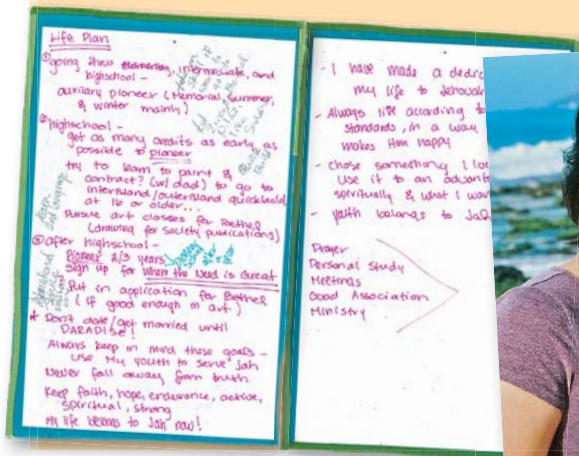 Life Plan
① going thru elementary, intermediate, and
highschool -
auxilary pioneer (Memorial, summer,
& winter mainly)
② highschool -
get as many credits as early as
possible to pioneer
try to learn to paint &
contract? (w/ dad) to go to
interisland/outerisland quickbuild
at 16 or older...
Pursue art classes for Bethel
(drawing for society publications)
③ after highschool -
Pioneer 2/3 years
Sign up for When the Need is Great
Put in application for Bethel
(if good enough in art)
* Don't date/get married until
PARADISE!
Always keep in mind these goals -
use My youth to serve Jah
Never fall away from truth
Keep faith, hope, endurance, active,
spiritual, strong
My life belongs to Jah now!
- I have made a dedic
my life to Jehovah
- Always live according to
standards, in a way
makes Him happy
- chose something I lo
use it to an advant
spiritually & what I wan
- youth belongs to Jah
Prayer
Personal Study
Meetings
Good Association
Ministry